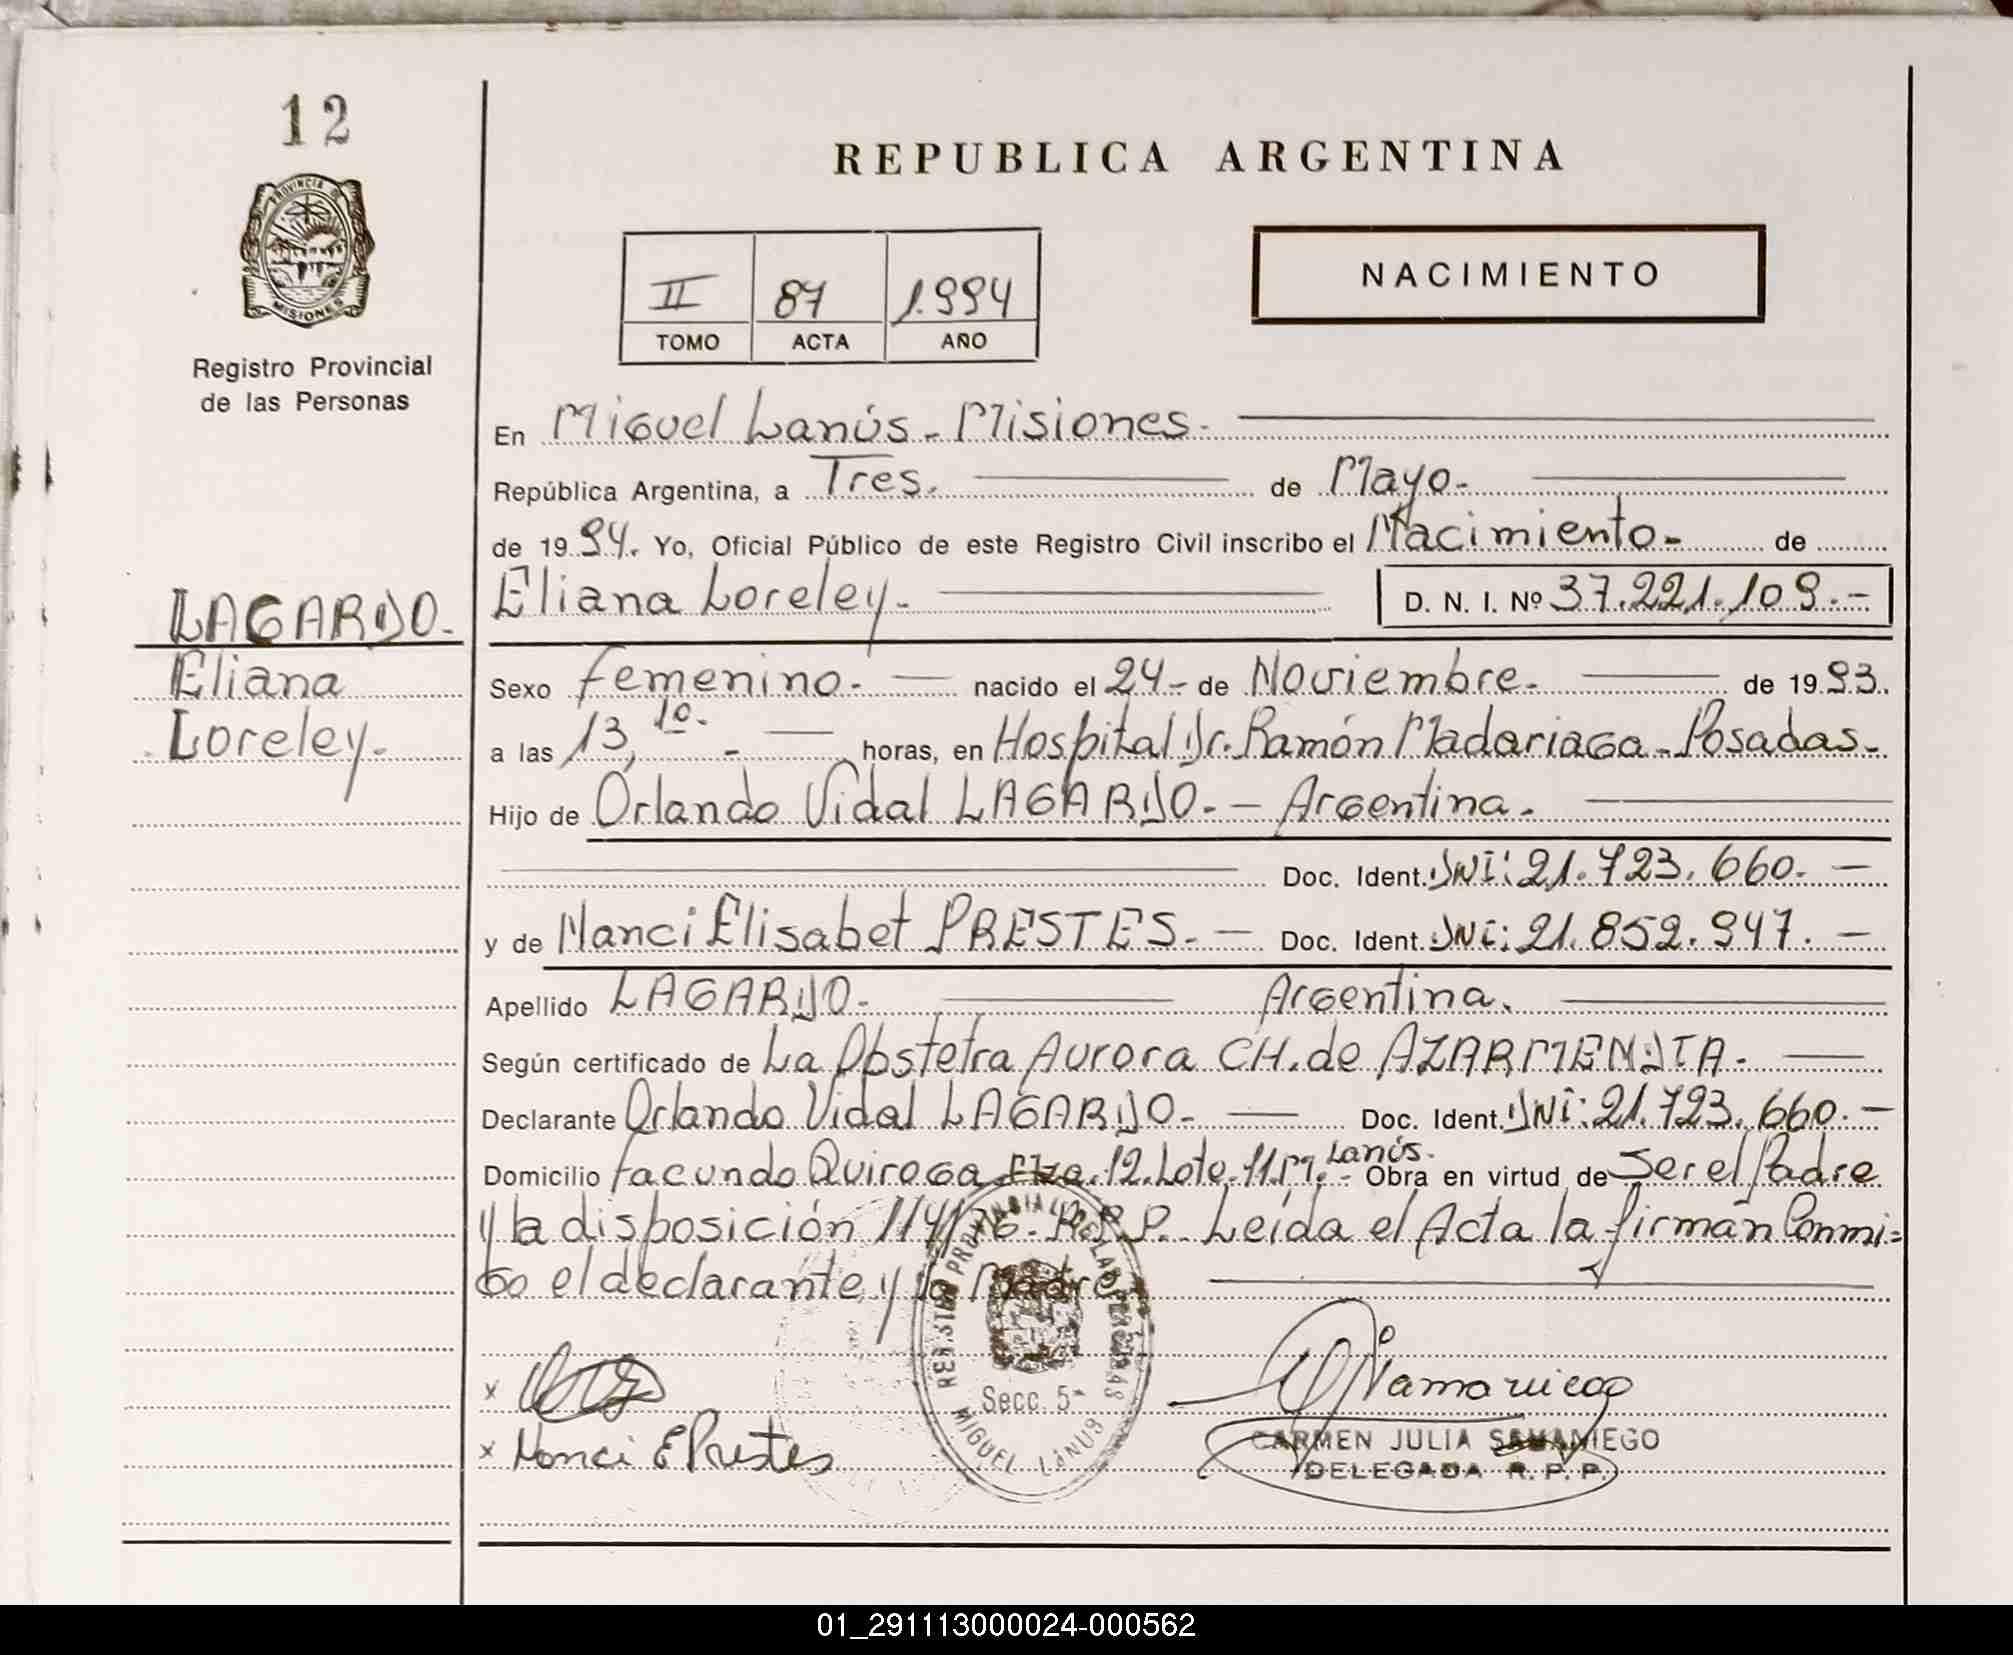 12
REPUBLICA ARGENTINA
PROVINCIA DE MISIONES
Registro Provincial
de las Personas
II 87 1.994
TOMO ACTA AÑO
NACIMIENTO
En Miguel Lanús - Misiones.
República Argentina, a Tres. de Mayo.
de 1994. Yo, Oficial Público de este Registro Civil inscribo el Nacimiento - de
Eliana Loreley. D. N. I. Nº 37.221.109.-
LAGARDO.
Eliana
Loreley.
Sexo femenino. nacido el 24 - de Noviembre. de 1993.
a las 13,10. - horas, en Hospital Dr. Ramón Madariaga - Posadas.
Hijo de Orlando Vidal LAGARDO. - Argentina.
Doc. Ident. DNI: 21.723.660. -
y de Nanci Elisabet PRESTES. - Doc. Ident. DNI: 21.852.947. -
Apellido LAGARDO. Argentina.
Según certificado de La Obstetra Aurora CH. de AZARMENDIA.
Declarante Orlando Vidal LAGARDO. Doc. Ident. DNI: 21.723.660. -
Domicilio facundo Quiroga Mza. 12. Lote. 11. M. Lanús. - Obra en virtud de Ser el Padre
y la disposición 114/76. R.P.P. Leída el Acta la firman Conmi=
go el declarante y la Madre
x
x Nanci E Prestes
REGISTRO PROVINCIAL DE LAS PERSONAS
Secc. 5ª
MIGUEL LANUS
Samaniego
CARMEN JULIA SAMANIEGO
DELEGADA R. P. P.
01_291113000024-000562